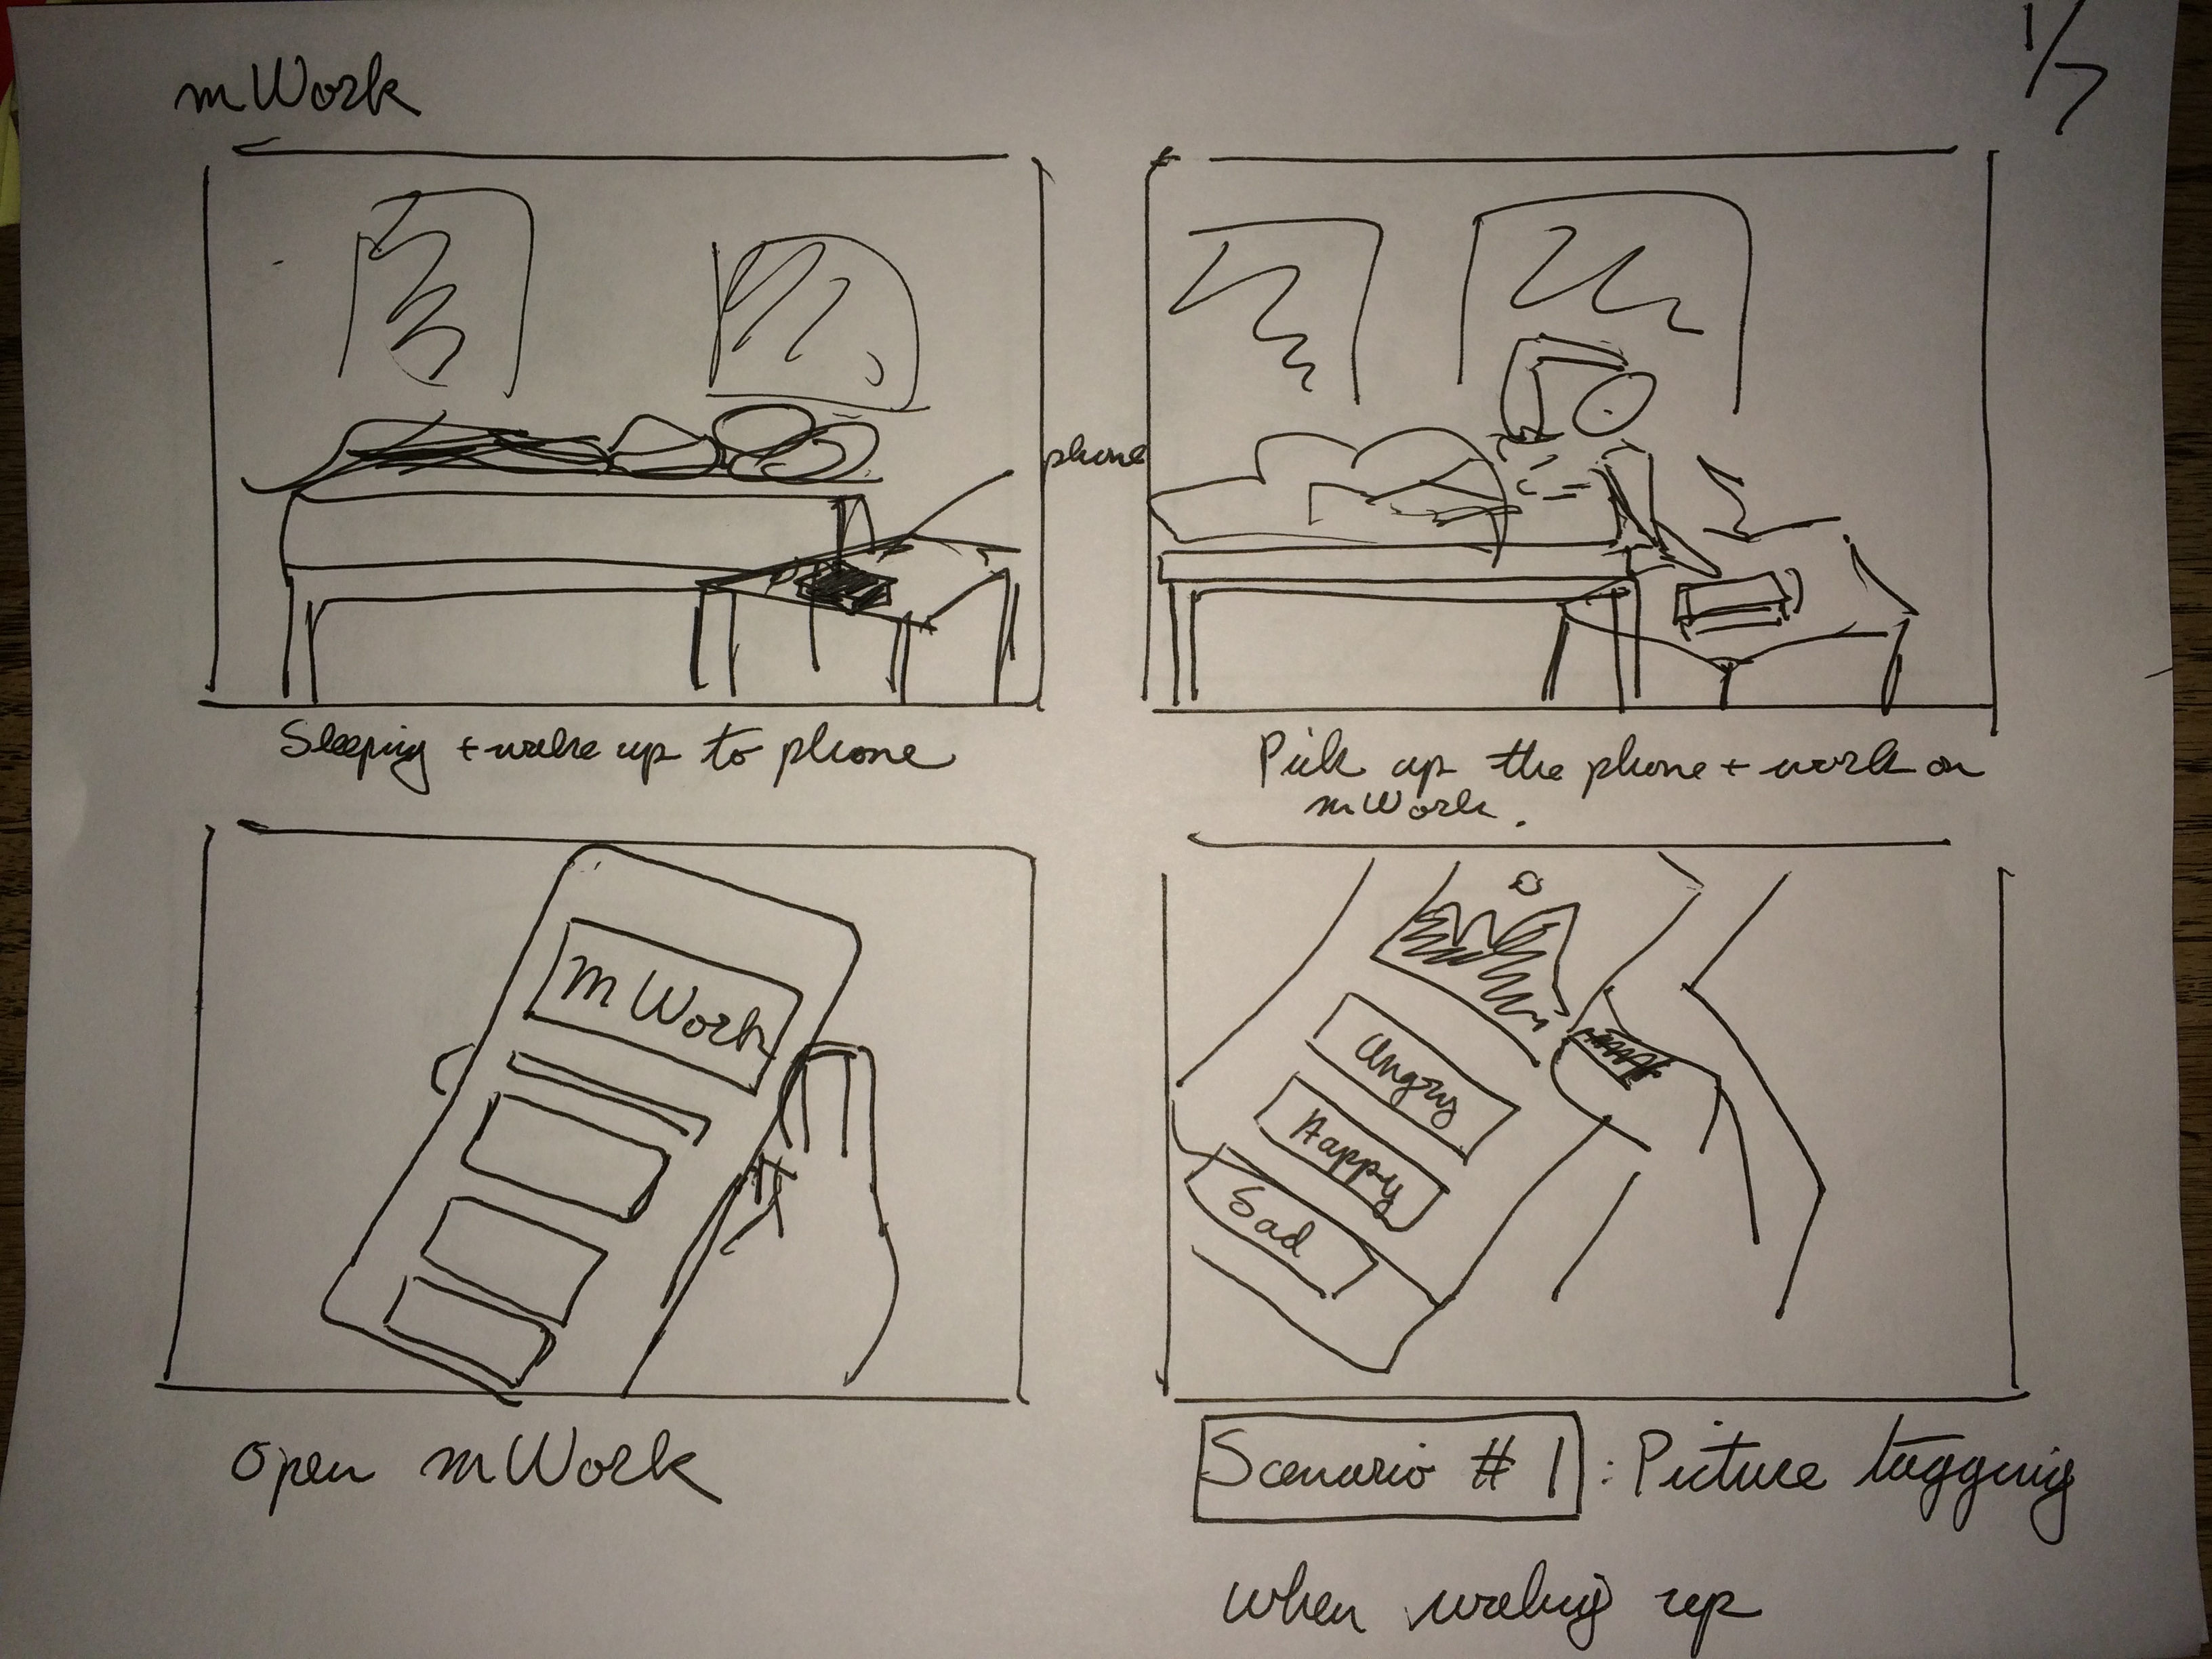 mWork
1/7
phone
Sleeping + wake up to phone
Pick up the phone + work on
mWork.
mWork
Angry
Happy
Sad
Open mWork
Scenario #1: Picture tagging
when waking up